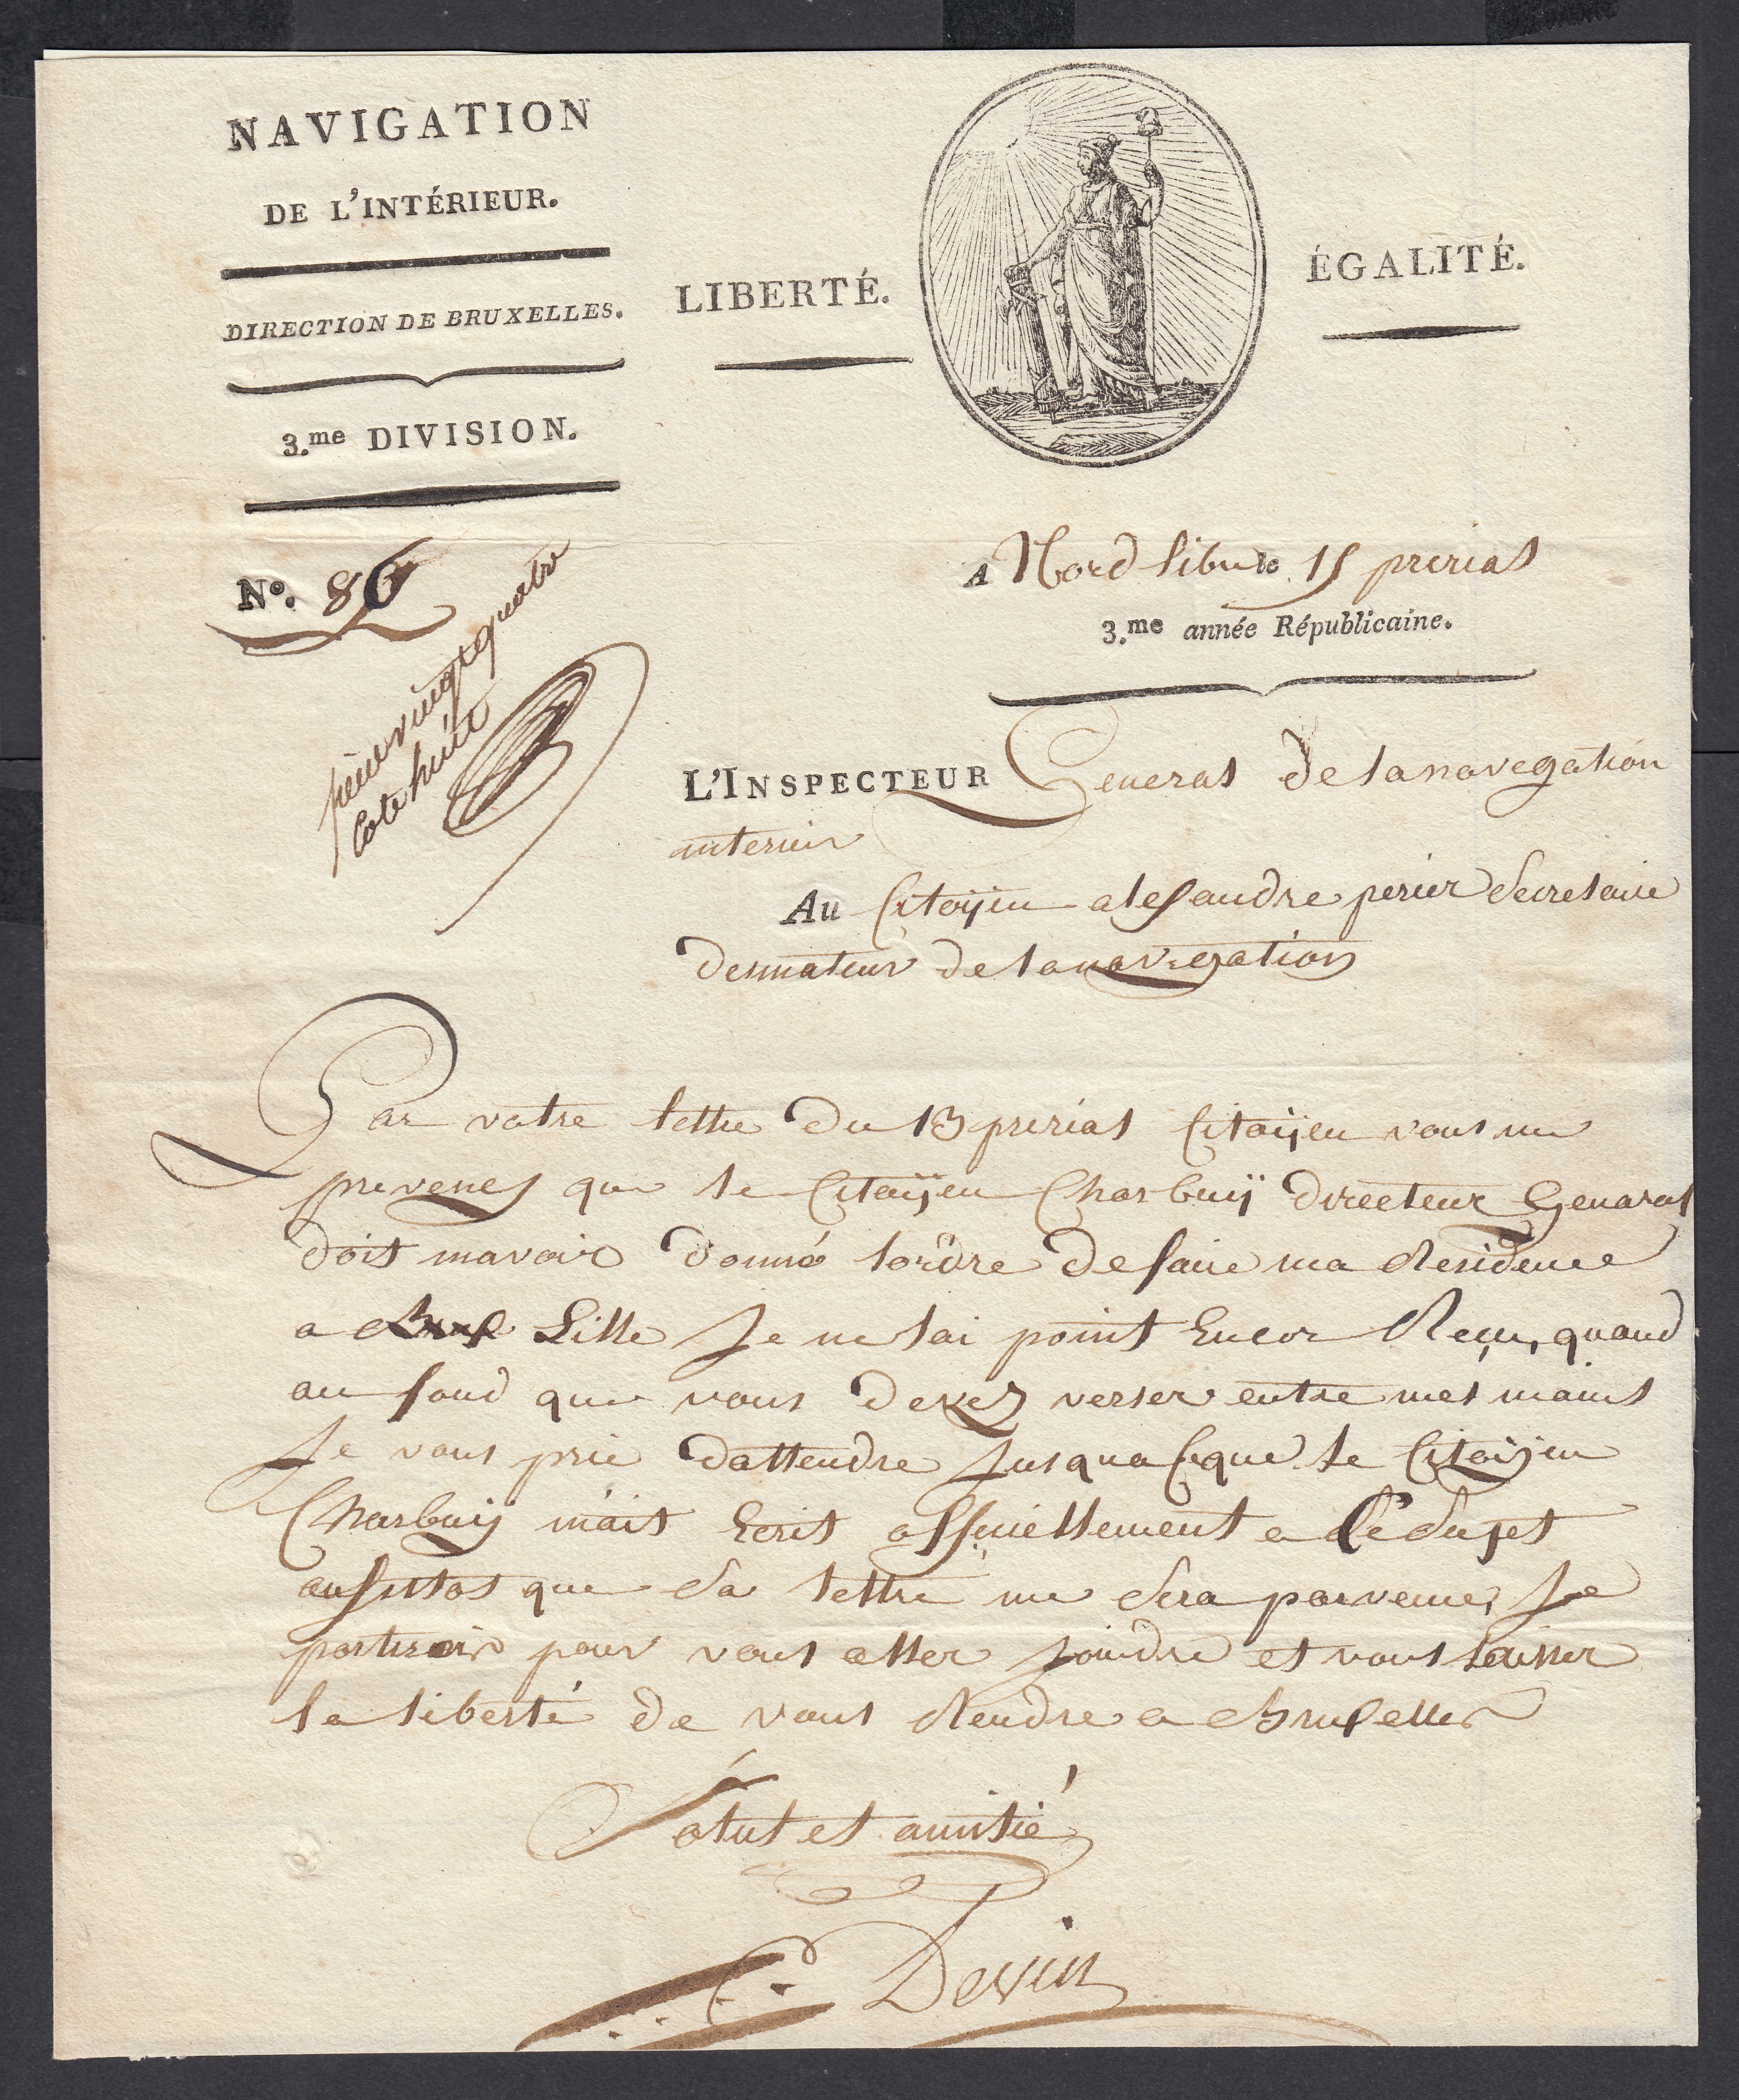 NAVIGATION
DE L'INTÉRIEUR.
DIRECTION DE BRUXELLES.
3.me DIVISION.
LIBERTÉ.
ÉGALITÉ.
No. 86
piece vingt quatre
Cote huit
A Nord libre le 15 prerial
3.me année Républicaine.
L'INSPECTEUR General de la navegation
interieur
Au Citoÿen alexandre perier Secretaire
de la navegation
Par votre lettre du 13 prerial Citoÿen vous me
prevenez que le Citoÿen Charbuÿ directeur Genaral
doit mavoir donné lordre de faire ma Residence
a Lille Je ne lai point Encor Reçu, quand
au fond que vous devez verser entre mes mains
Je vous prie dattendre Jusqua ce que le Citoÿen
Charbuÿ m'ait Ecrit officiellement a Ce Sujet
ausitos que Sa lettre me Sera parvenue, Je
partirair pour vous aller Joindre et vous laisser
la liberté de vous Rendre a Bruxelles
Salut et amitié
Devin